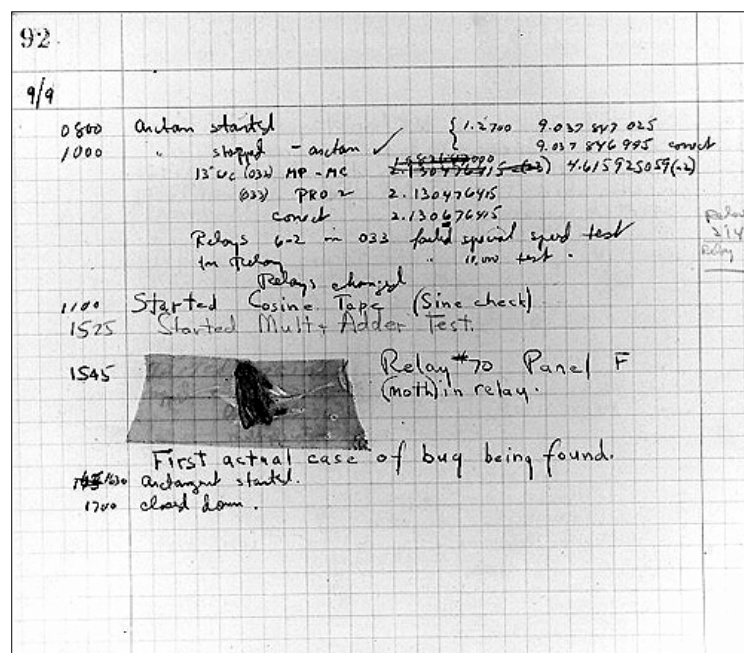 92
9/9
0800 arctan started { 1.2700 9.037 847 025
1000 " stopped - arctan ✓ 9.037 846 995 correct
13"uc (032) MP - MC 2.130476415 4.615925059(-2)
(033) PRO 2 2.130476415
correct 2.130676415
Relays 6-2 in 033 failed special speed test
in relay " 10,000 test .
Relays changed
1100 Started Cosine Tape (Sine check)
1525 Started Mult + Adder Test.
1545 Relay #70 Panel F
(moth) in relay.
First actual case of bug being found.
1630 arctangent started.
1700 closed down .
Relay
Relay